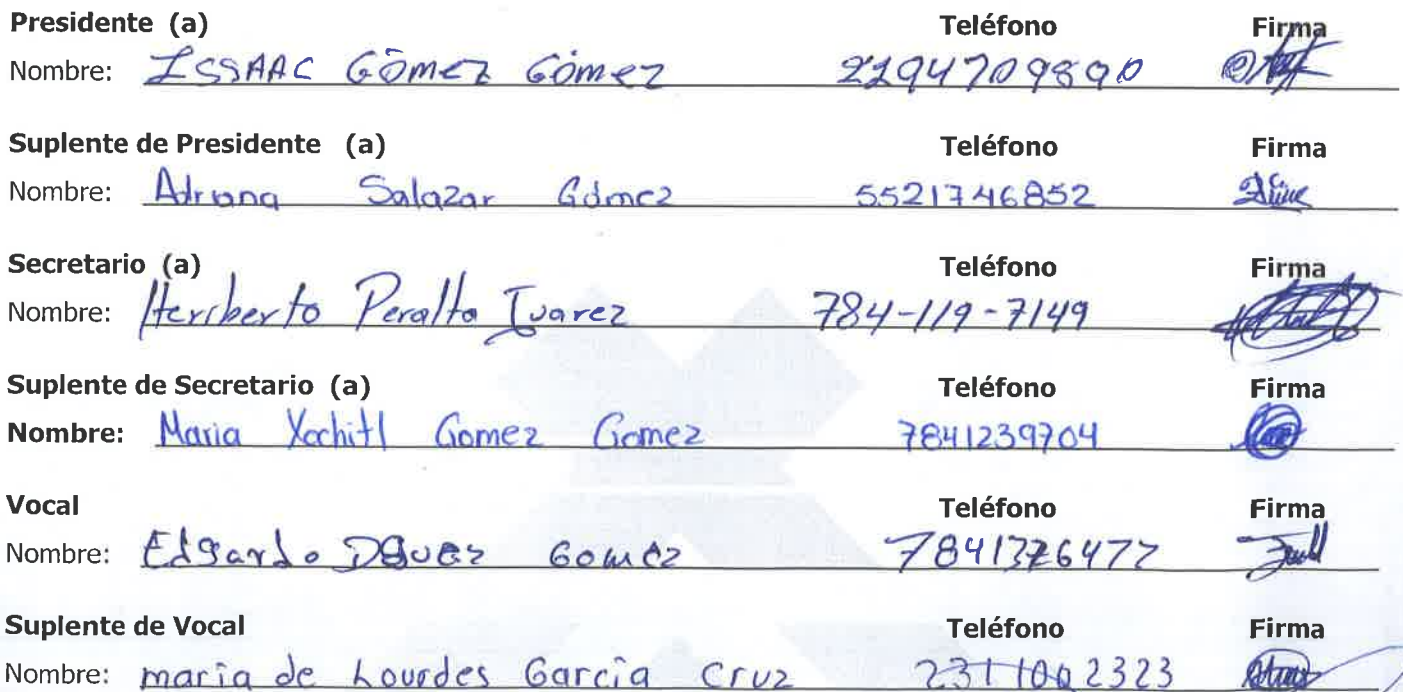 Presidente (a) Teléfono Firma
Nombre: ISSAAC GÓMEZ GÓMEZ 2294709890
Suplente de Presidente (a) Teléfono Firma
Nombre: Adriana Salazar Gómez 5521746852
Secretario (a) Teléfono Firma
Nombre: Heriberto Peralta Juarez 784-119-7149
Suplente de Secretario (a) Teléfono Firma
Nombre: Maria Xochitl Gomez Gomez 7841239704
Vocal Teléfono Firma
Nombre: Edgardo Gomez
Suplente de Vocal Teléfono Firma
Nombre: maria de Lourdes García Cruz 2311002323